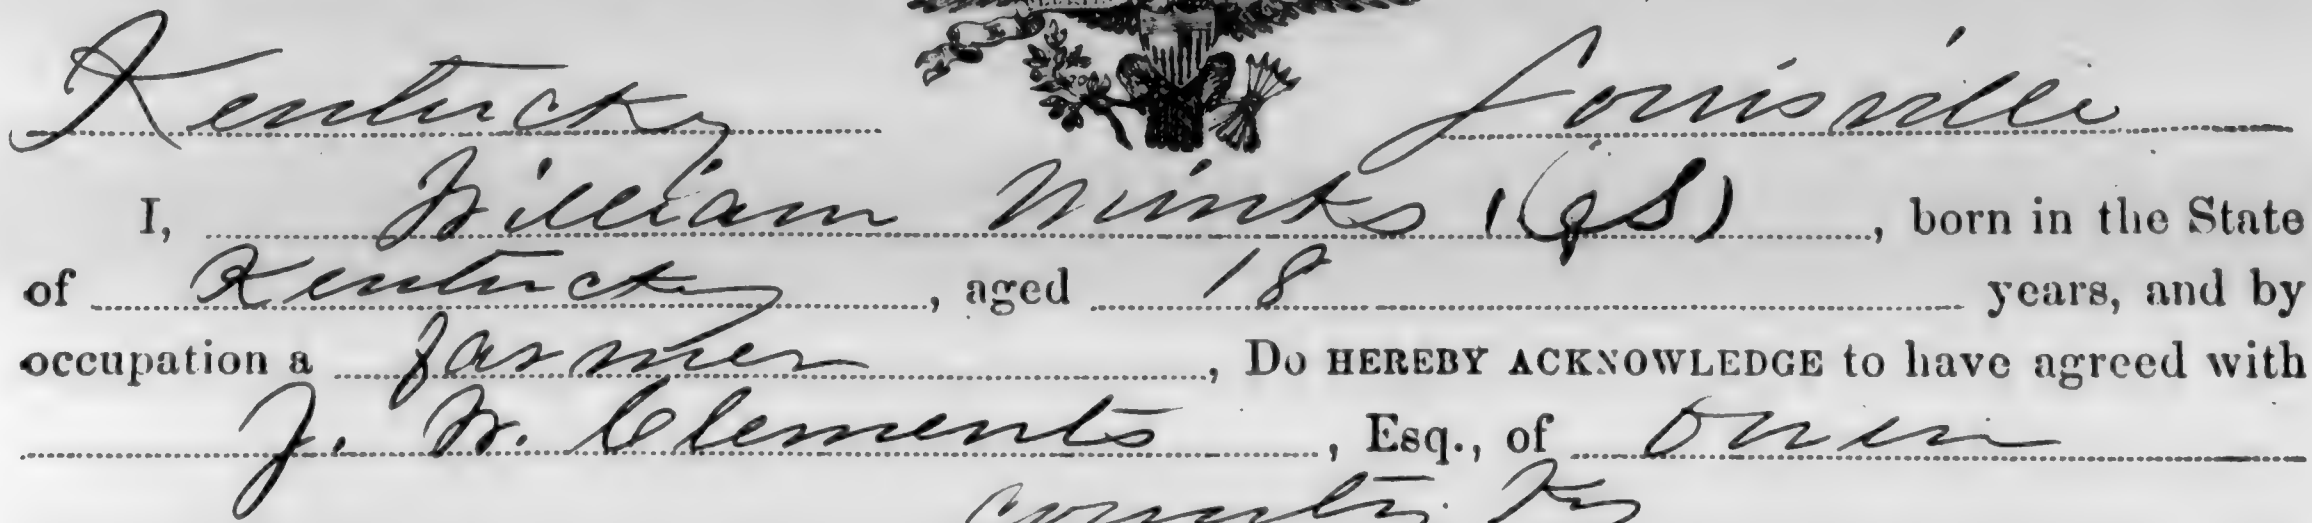 Kentucky Louisville
I, William Minks (S), born in the State
of Kentucky, aged 18 years, and by
occupation a farmer, Do HEREBY ACKNOWLEDGE to have agreed with
J. W. Clements, Esq., of Owen
County Ky